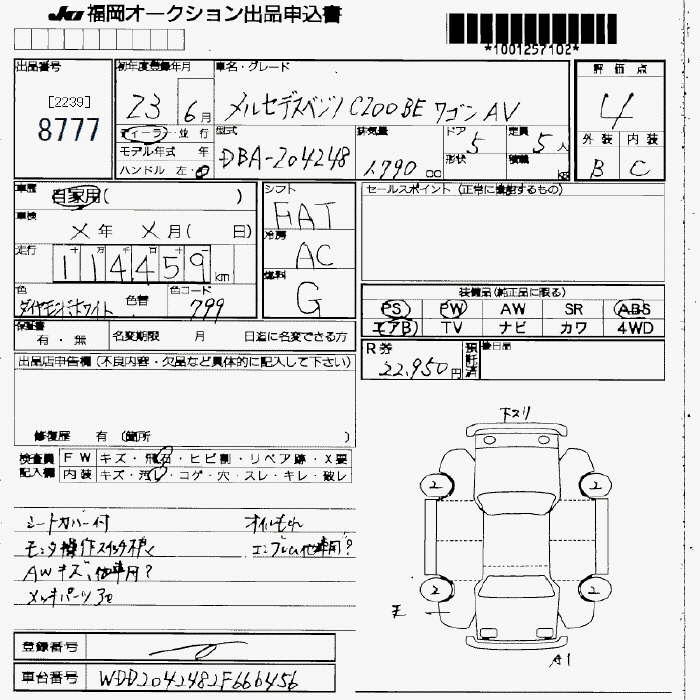 JU 福岡オークション出品申込書
*1001257102*
出品番号
[2239]
8777
初年度登録年月
23 6月
ディーラー・並行
モデル年式 年
ハンドル 左・右
車名・グレード
メルセデスベンツ C200BE ワゴン AV
型式
DBA-204248
排気量
1.790 cc
ドア 5
形状
定員 5人
積載 kg
評価点
4
外装 内装
B C
車歴
自家用( )
車検
X年 X月( 日)
走行
十 万 千
114459km
色
ダイヤモンドホワイト
色替
色コード
799
シフト
FAT
冷房
AC
燃料
G
セールスポイント (正常に機能するもの)
装備品(純正品に限る)
PS PW AW SR ABS
エアB TV ナビ カワ 4WD
保証書
有・無
名変期限 月 日迄に名変できる方
R券
22,950円
預託済
後日品
出品店申告欄 (不良内容・欠品など具体的に記入して下さい)
修復歴 有 (箇所 )
検査員記入欄
FW キズ・飛石・ヒビ割・リペア跡・X要
内装 キズ・汚レ・コゲ・穴・スレ・キレ・破レ
シートカバー付
オイルもれ
モニタ操作スイッチスレ
エンブレム他車用?
AWキズ、他車用?
メッキパーツ
下スリ
2 2
2 2
A1
登録番号
車台番号
WDD2042482F666456